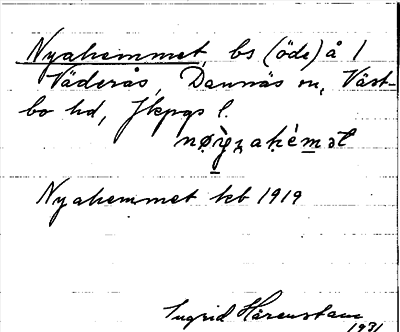 Nyahemmet, bs (öde) å 1
Väderås, Dannäs sn, Väst-
bo hd, Jkpgs l.
Nyahemmet kb 1919
Ingrid Härenstam
1931